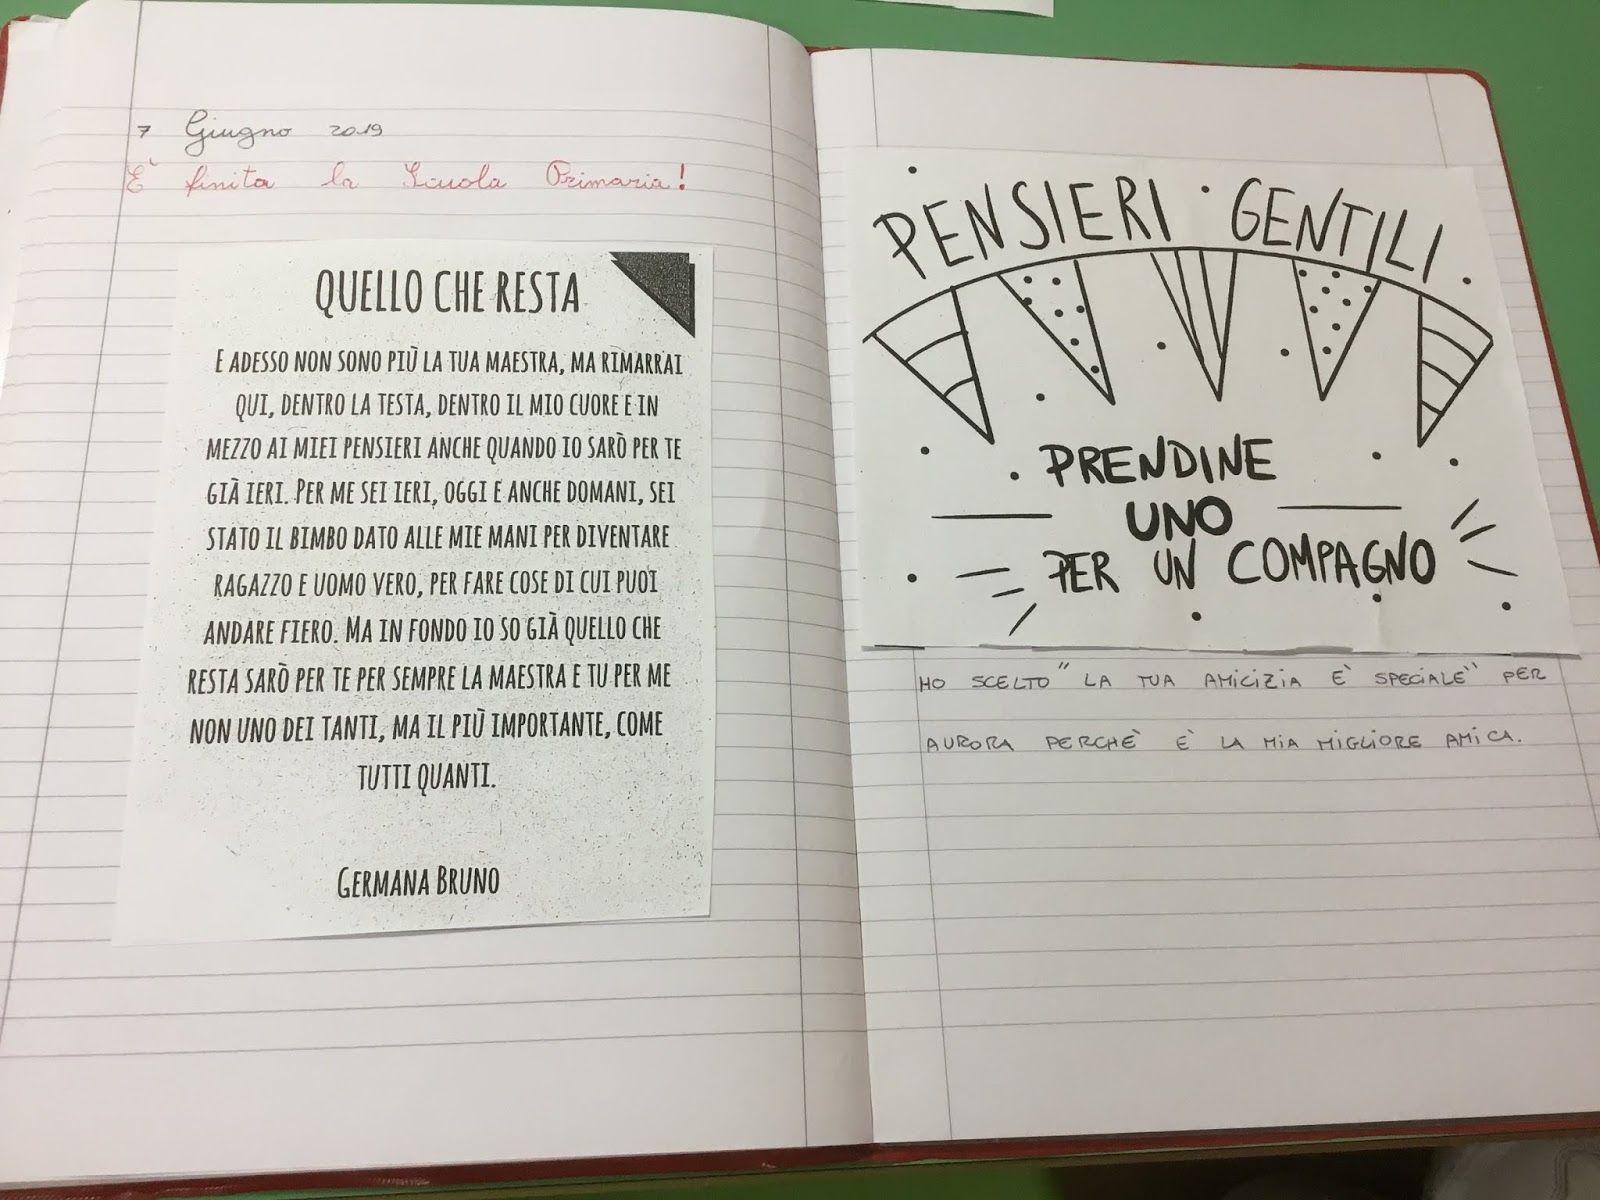 7 Giugno 2019
È finita la Scuola Primaria!
QUELLO CHE RESTA
E ADESSO NON SONO PIÙ LA TUA MAESTRA, MA RIMARRAI
QUI, DENTRO LA TESTA, DENTRO IL MIO CUORE E IN
MEZZO AI MIEI PENSIERI ANCHE QUANDO IO SARÒ PER TE
GIÀ IERI. PER ME SEI IERI, OGGI E ANCHE DOMANI, SEI
STATO IL BIMBO DATO ALLE MIE MANI PER DIVENTARE
RAGAZZO E UOMO VERO, PER FARE COSE DI CUI PUOI
ANDARE FIERO. MA IN FONDO IO SO GIÀ QUELLO CHE
RESTA SARÒ PER TE PER SEMPRE LA MAESTRA E TU PER ME
NON UNO DEI TANTI, MA IL PIÙ IMPORTANTE, COME
TUTTI QUANTI.
GERMANA BRUNO
PENSIERI GENTILI
PRENDINE
UNO
PER UN COMPAGNO
HO SCELTO "LA TUA AMICIZIA È SPECIALE" PER
AURORA PERCHÈ È LA MIA MIGLIORE AMICA.